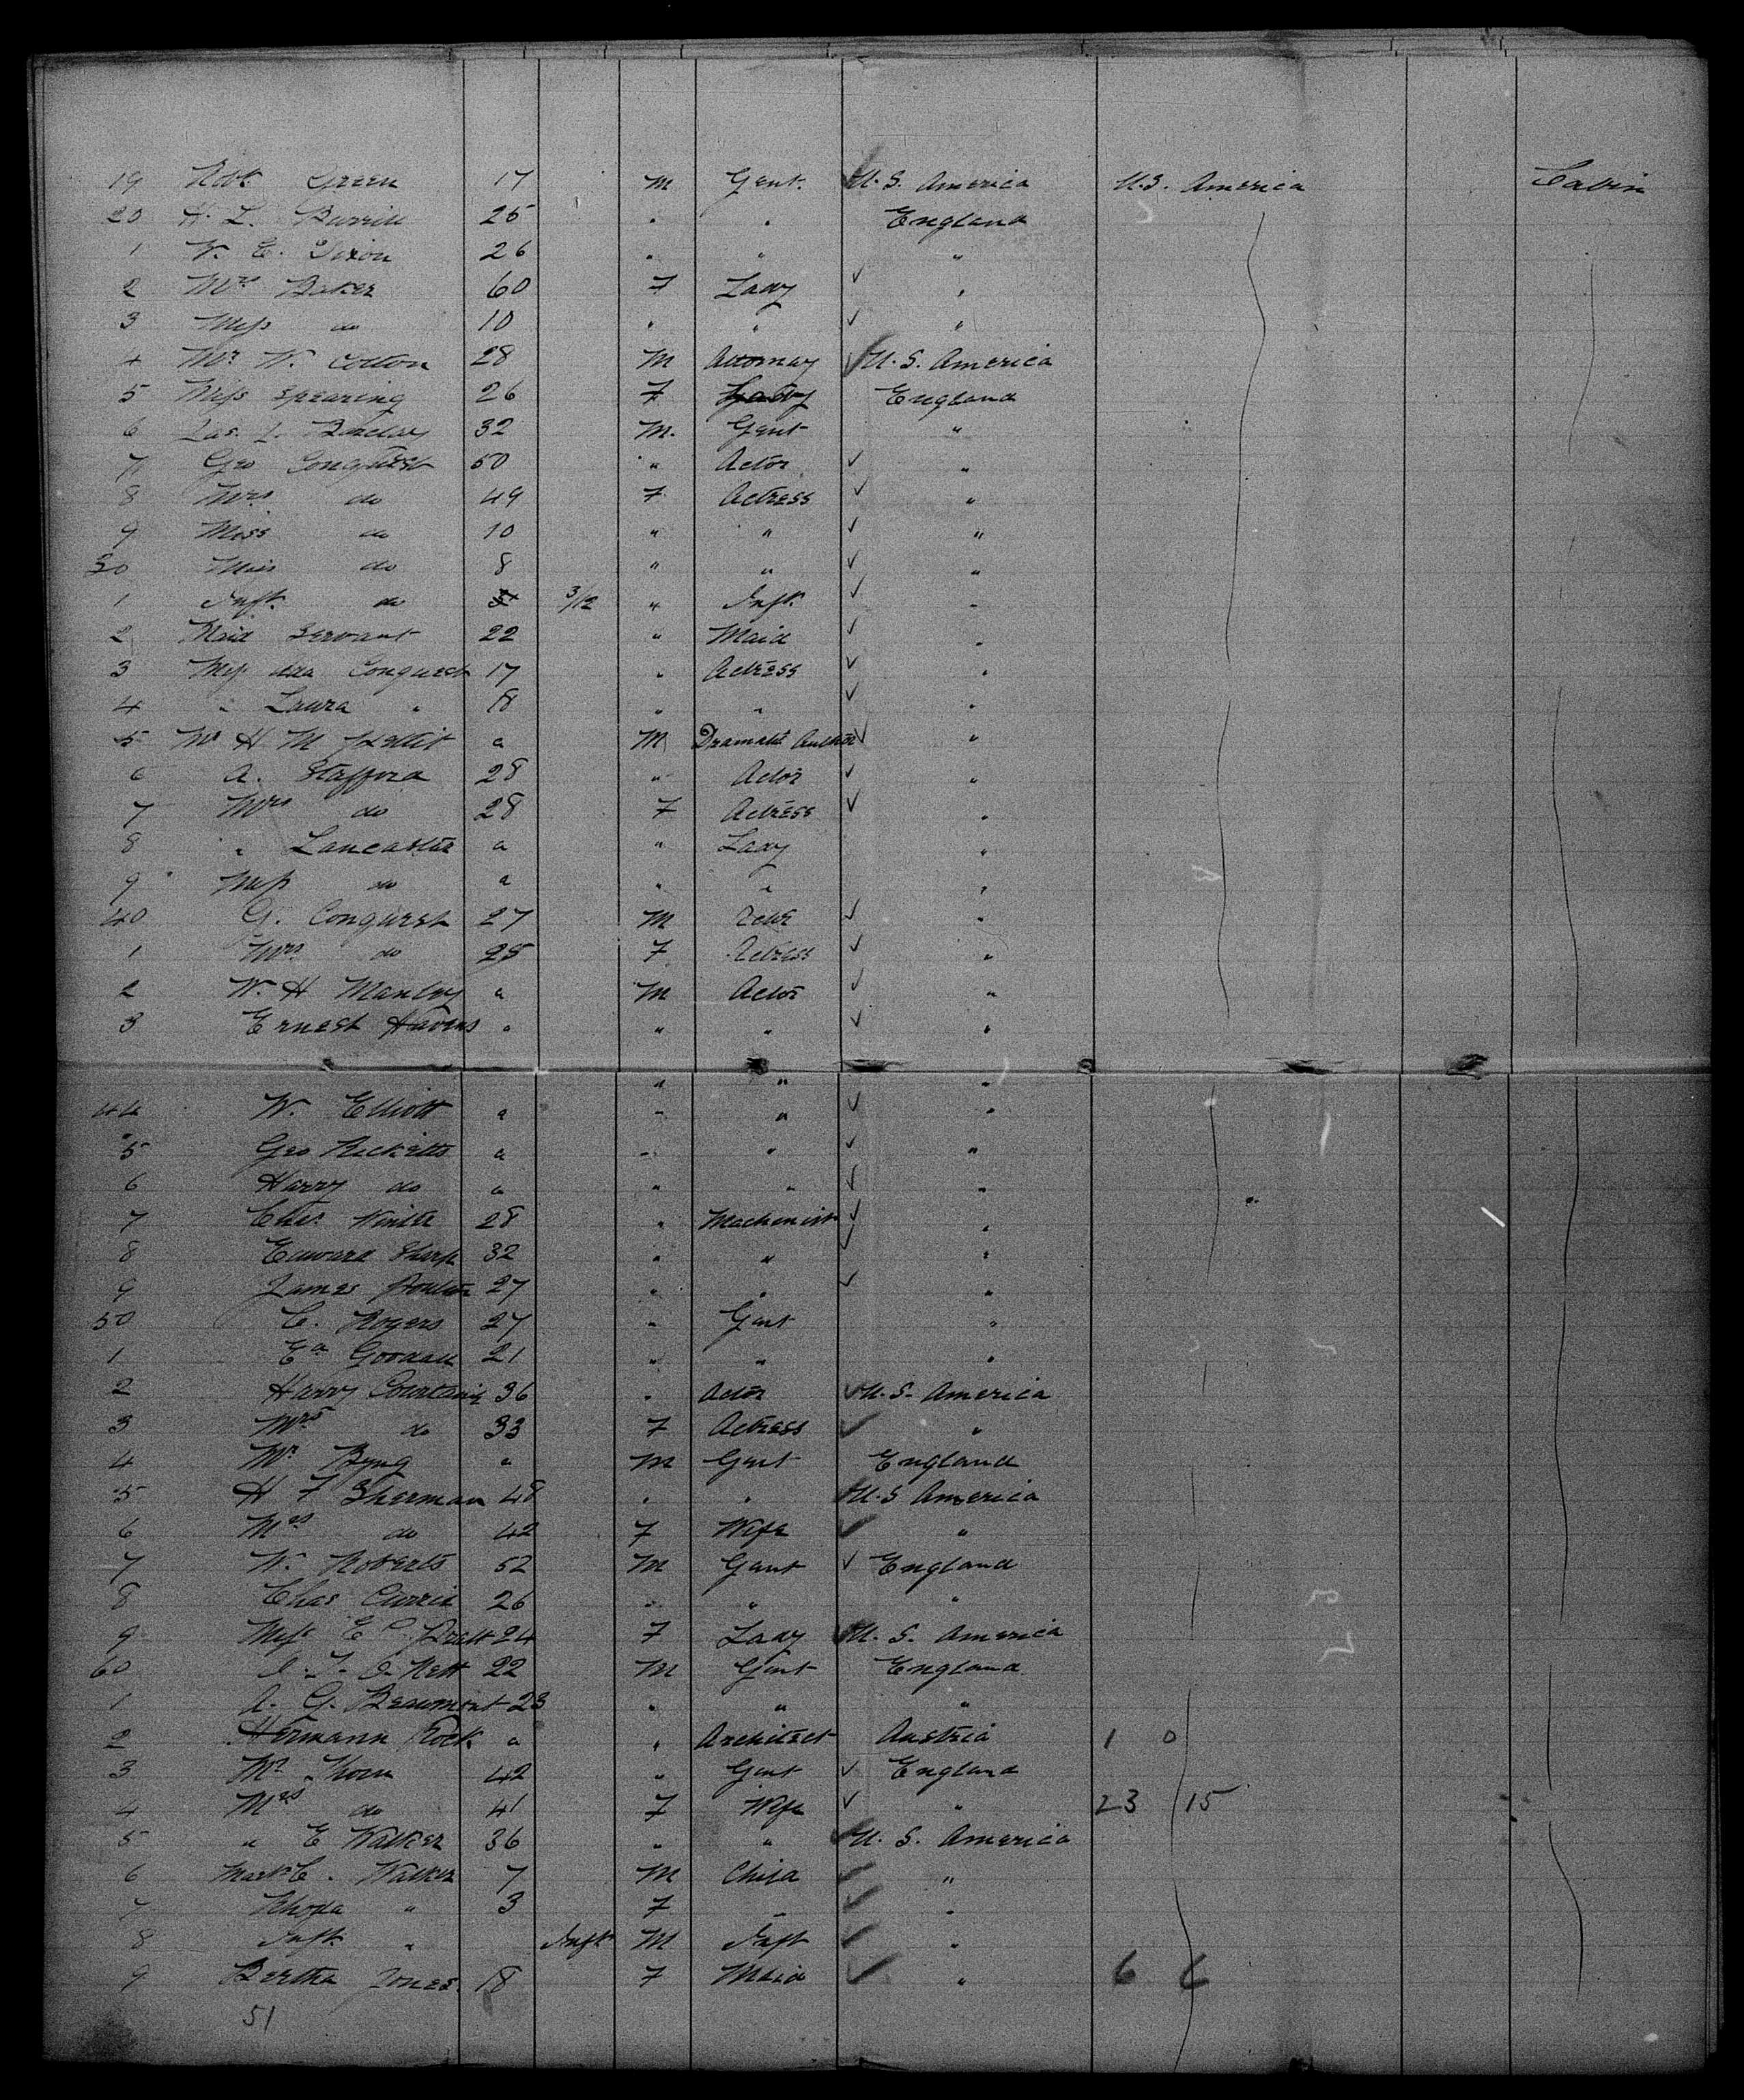 19 Robt. Green 17 M Gent. U.S. America U.S. America Cabin
20 H. L. Burrill 25 " " England
1 W. E. Dixon 26 " " "
2 Mrs Baker 60 F Lady "
3 Miss do 10 " " "
4 Mr W. Cotton 28 M Attorney U.S. America
5 Miss Spearing 26 F Lady England
6 Jas. J. Barclay 32 M. Gent "
7 Geo Conquest 50 " Actor "
8 Mrs do 49 F Actress "
9 Miss do 10 " " "
30 Miss do 8 " " "
1 Inft. do 3/12 " Inft. "
2 Maid Servant 22 " Maid "
3 Miss Ada Conquest 17 " Actress "
4 " Laura " 18 " " "
5 Mr H M Pettit a M Dramatic Author "
6 A. Stafford 28 " Actor "
7 Mrs do 28 F Actress "
8 " Lancaster a " Lady "
9 Miss do a " " "
40 G. Conquest 27 M Actor "
1 Mrs do 25 F Actress "
2 W. H Manley a M Actor "
3 Ernest Havens " " " "
" " "
44 W. Elliott a " " "
5 Geo Ricketts a " " "
6 Harry do a " " "
7 Chas 28 " Machinist "
8 Edward Sharp 32 " " "
9 James 27 " " "
50 C. Rogers 27 " Gent "
1 Ed Goodall 21 " " "
2 Harry Courtaine 36 " Actor U.S. America
3 Mrs do 33 F Actress "
4 Mr Byng a M Gent England
5 H F Sherman 48 " " U.S America
6 Mrs do 42 F Wife "
7 W. Roberts 52 M Gent England
8 Chas Currie 26 " " "
9 Miss E Pratt 24 F Lady U.S. America
60 Nett 22 M Gent England
1 A. G. Beaumont 23 " " "
2 Hermann Rock a " Architect Austria 1 0
3 Mr Thorn 42 " Gent England
4 Mrs do 41 F Wife " 23 15
5 " E Walker 36 " " U.S. America
6 Mast. C. Walker 7 M Child "
7 Rhoda " 3 F " "
8 Inft. " Inft M Inft "
9 Bertha Jones. 18 F Maid " 6 6
51